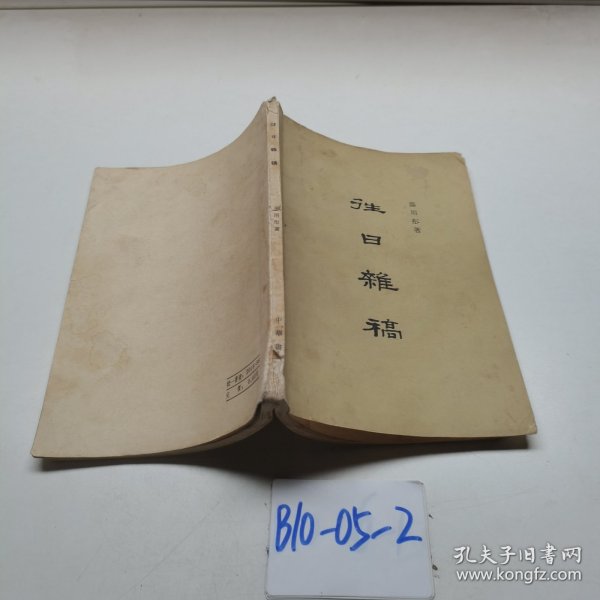 往日雜稿
滕固彤著
往日雜稿
中華書
B10-05-2
孔夫子旧书网
www.kongfz.com